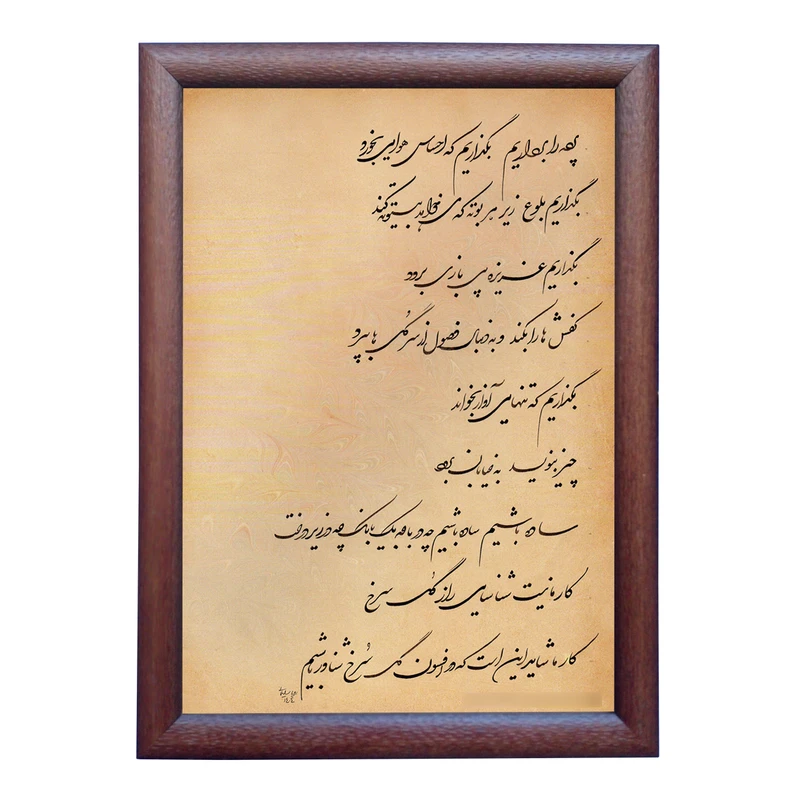 پرده را برداریم بگذاریم که احساس هوایی بخورد
بگذاریم بلوغ زیر هر بوته که می خواهد بیتوته کند
بگذاریم غریزه پی بازی برود
کفش ها را بکند و به دنبال فصول از سر گل ها بپرد
بگذاریم که تنهایی آواز بخواند
چیز بنویسد به خیابان برود
ساده باشیم ساده باشیم چه در باجه یک بانک چه در زیر درخت
کار ما نیست شناسایی راز گل سرخ
کار ما شاید این است که در افسون گل سرخ شناور باشیم